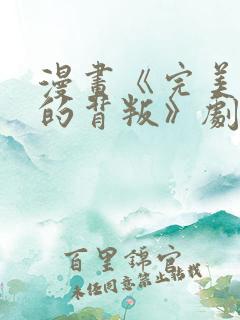 漫畫《完美
的背叛》劇
百里錦官
未任同意禁止轉載